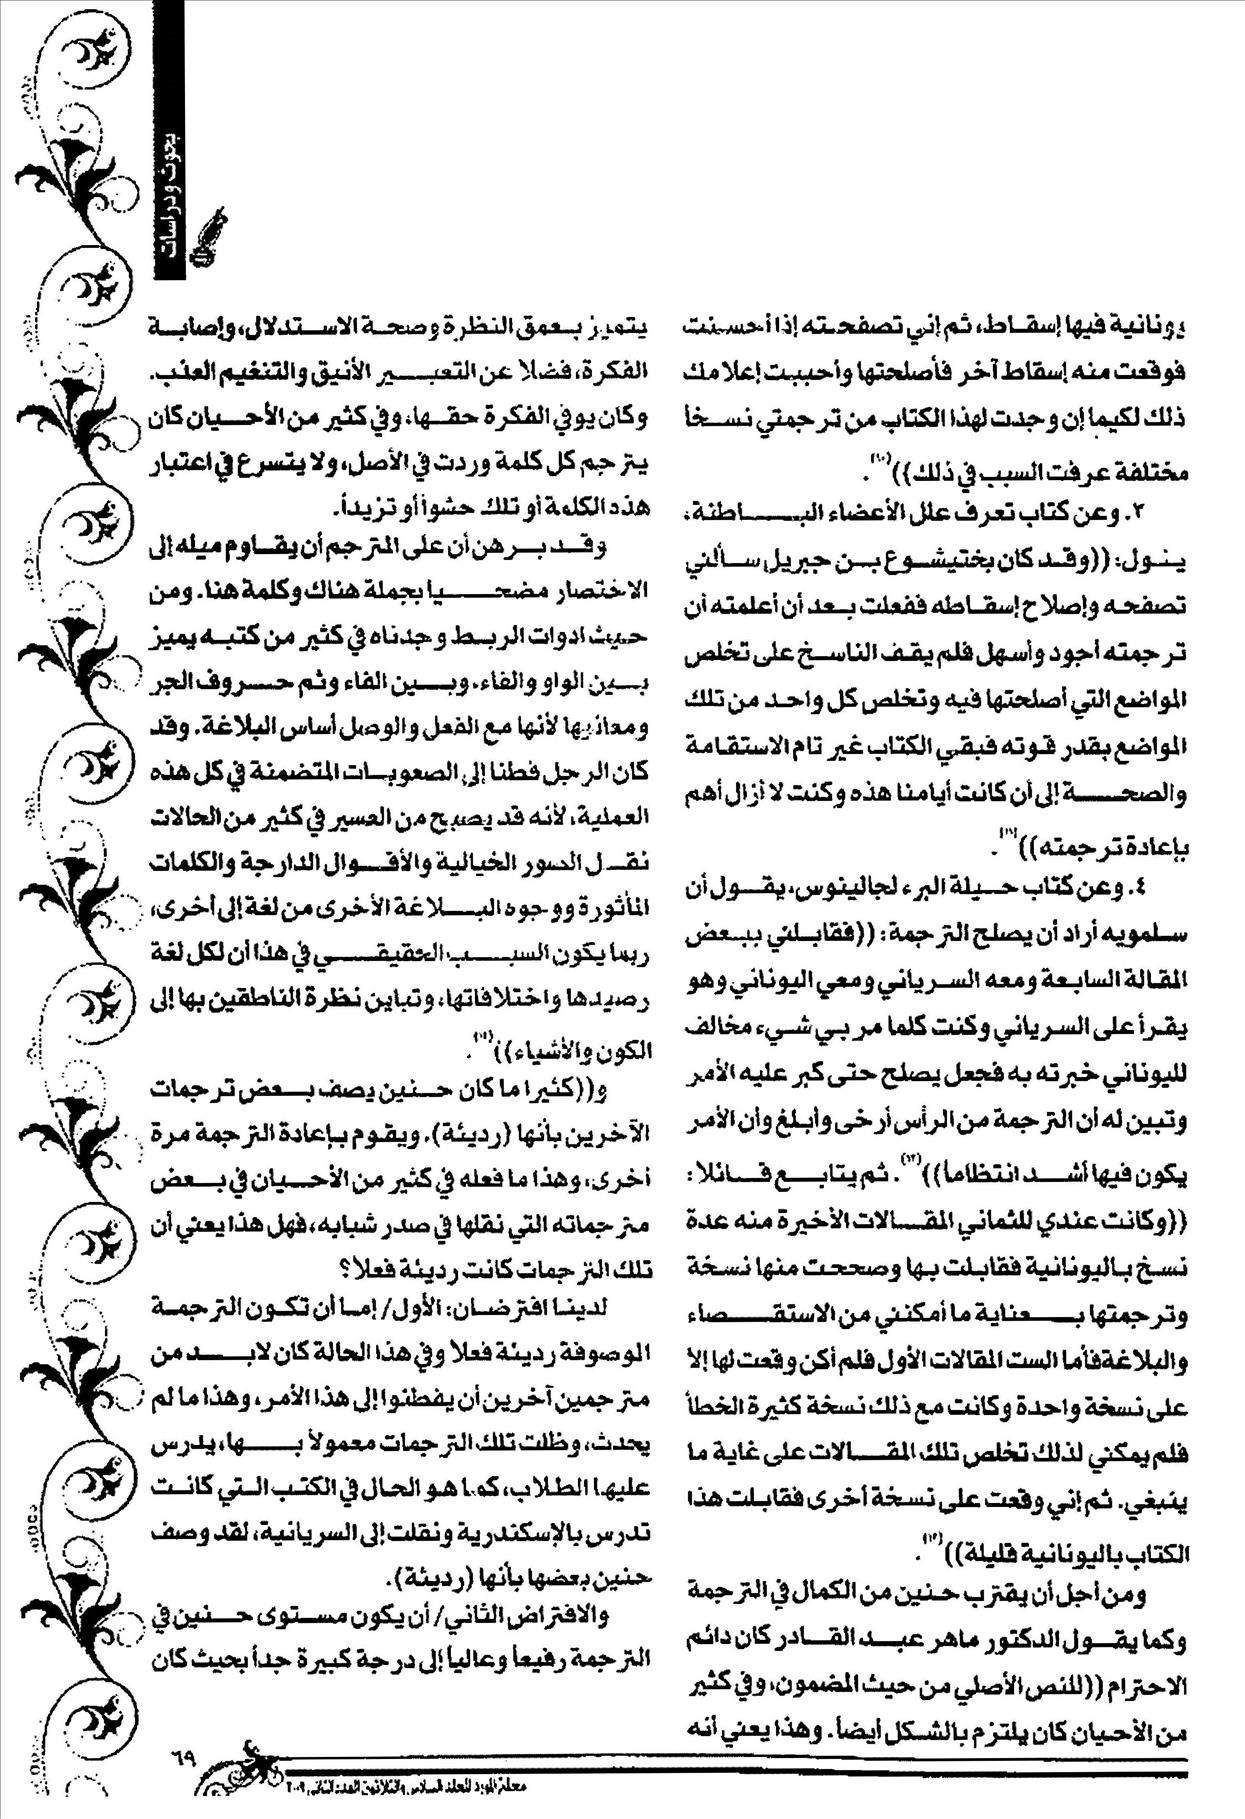 بحوث ودراسات
يونانية فيها إسقاط، ثم إني تصفحته إذا أحسنت
فوقعت منه إسقاط آخر فأصلحتها وأحببت إعلامك
ذلك لكيما إن وجدت لهذا الكتاب من ترجمتي نسخاً
مختلفة عرفت السبب في ذلك))(١٠).
٣. وعن كتاب تعرف علل الأعضاء الباطنة،
يقول: ((وقد كان بختيشوع بن جبريل سألني
تصفحه وإصلاح إسقاطه ففعلت بعد أن أعلمته أن
ترجمته أجود وأسهل فلم يقف الناسخ على تخلص
المواضع التي أصلحتها فيه وتخلص كل واحد من تلك
المواضع بقدر قوته فبقي الكتاب غير تام الاستقامة
والصحة إلى أن كانت أيامنا هذه وكنت لا أزال أهم
بإعادة ترجمته))(١١).
٤. وعن كتاب حيلة البرء لجالينوس، يقول أن
سلمويه أراد أن يصلح الترجمة: ((فقابلني ببعض
المقالة السابعة ومعه السرياني ومعي اليوناني وهو
يقرأ على السرياني وكنت كلما مر بي شيء مخالف
لليوناني خبرته به فجعل يصلح حتى كبر عليه الأمر
وتبين له أن الترجمة من الرأس أرخى وأبلغ وأن الأمر
يكون فيها أشد انتظاما))(١٢). ثم يتابع قائلا:
((وكانت عندي للثماني المقالات الأخيرة منه عدة
نسخ باليونانية فقابلت بها وصححت منها نسخة
وترجمتها بعناية ما أمكنني من الاستقصاء
والبلاغة فأما الست المقالات الأول فلم أكن وقعت لها إلا
على نسخة واحدة وكانت مع ذلك نسخة كثيرة الخطأ
فلم يمكني لذلك تخلص تلك المقالات على غاية ما
ينبغي. ثم إني وقعت على نسخة أخرى فقابلت هذا
الكتاب باليونانية قليلة))(١٣).
ومن أجل أن يقترب حنين من الكمال في الترجمة
وكما يقول الدكتور ماهر عبد القادر كان دائم
الاحترام ((للنص الأصلي من حيث المضمون، وفي كثير
من الأحيان كان يلتزم بالشكل أيضاً. وهذا يعني أنه
يتميز بعمق النظرة وصحة الاستدلال، وإصابة
الفكرة، فضلا عن التعبير الأنيق والتنغيم العذب.
وكان يوفي الفكرة حقها، وفي كثير من الأحيان كان
يترجم كل كلمة وردت في الأصل، ولا يتسرع في اعتبار
هذه الكلمة أو تلك حشواً أو تزيداً.
وقد برهن أن على المترجم أن يقاوم ميله إلى
الاختصار مضحيا بجملة هناك وكلمة هنا. ومن
حيث ادوات الربط وجدناه في كثير من كتبه يميز
بين الواو والفاء، وبين الفاء وثم حروف الجر
ومعانيها لأنها مع الفعل والوصل أساس البلاغة. وقد
كان الرجل فطنا إلى الصعوبات المتضمنة في كل هذه
العملية، لأنه قد يصبح من العسير في كثير من الحالات
نقل الصور الخيالية والأقوال الدارجة والكلمات
المأثورة ووجوه البلاغة الأخرى من لغة إلى أخرى،
ربما يكون السبب الحقيقي في هذا أن لكل لغة
رصيدها واختلافاتها، وتباين نظرة الناطقين بها إلى
الكون والأشياء)).
و((كثيرا ما كان حنين يصف بعض ترجمات
الآخرين بأنها (رديئة). ويقوم بإعادة الترجمة مرة
أخرى، وهذا ما فعله في كثير من الأحيان في بعض
مترجماته التي نقلها في صدر شبابه، فهل هذا يعني أن
تلك الترجمات كانت رديئة فعلا؟
لدينا افترضان: الأول/ إما أن تكون الترجمة
الموصوفة رديئة فعلا وفي هذا الحالة كان لابد من
مترجمين آخرين أن يفطنوا إلى هذا الأمر، وهذا ما لم
يحدث، وظلت تلك الترجمات معمولاً بها، يدرس
عليها الطلاب، كما هو الحال في الكتب التي كانت
تدرس بالإسكندرية ونقلت إلى السريانية، لقد وصف
حنين بعضها بأنها (رديئة).
والافتراض الثاني/ أن يكون مستوى حنين في
الترجمة رفيعاً وعالياً إلى درجة كبيرة جداً بحيث كان
٦٩
مجلة المورد المجلد السادس والثلاثون العدد الثاني ٢٠٠٩